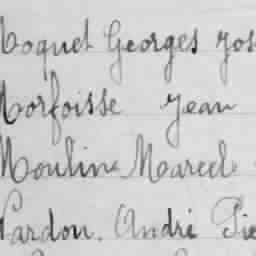 Moquet Georges Jos
Morfoisse Jean
Moulin Marcel
Pardon. André Pie